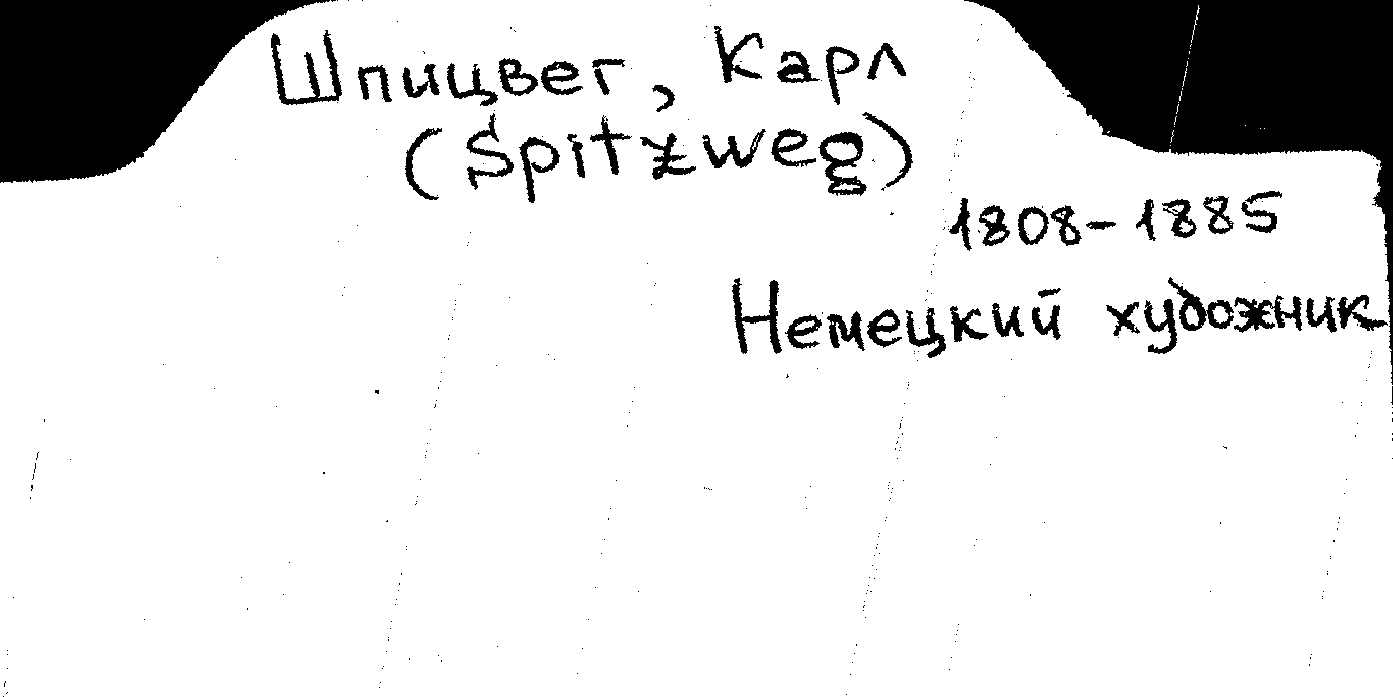 Шпицвег, Карл
(Spitzweg)
1808-1885
Немецкий художник